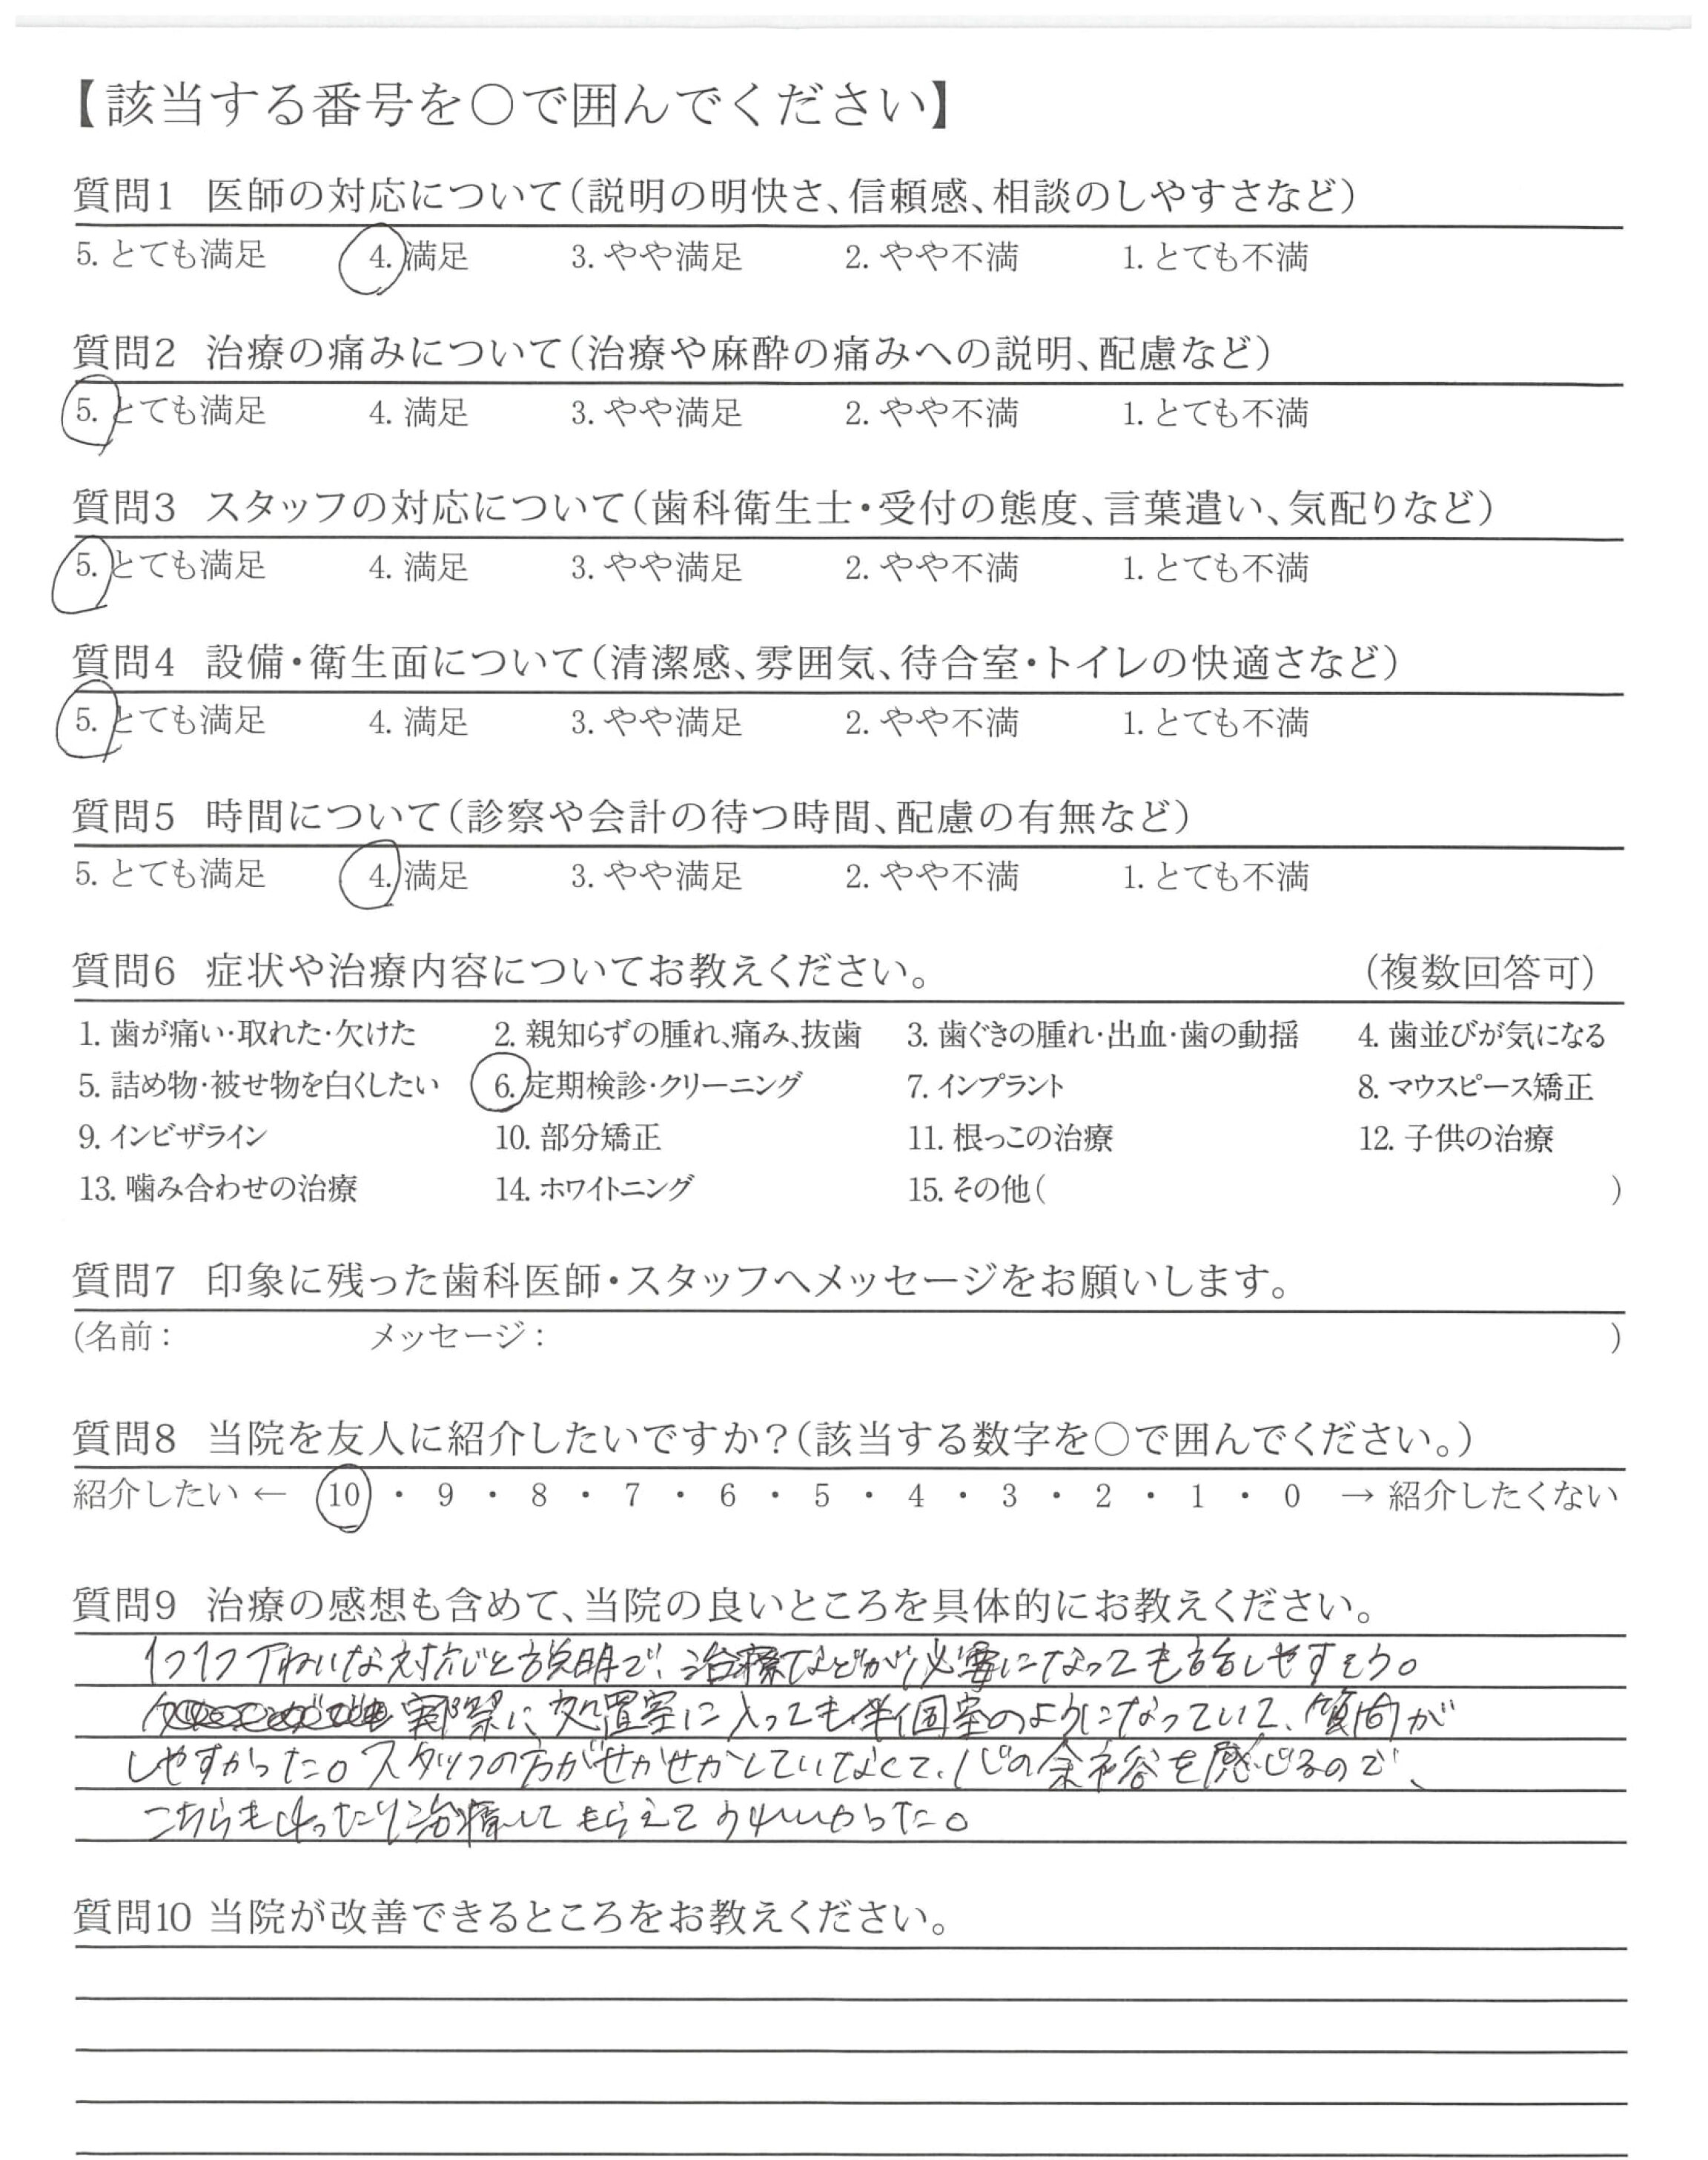 【該当する番号を○で囲んでください】
質問1 医師の対応について(説明の明快さ、信頼感、相談のしやすさなど)
5. とても満足 4. 満足 3. やや満足 2. やや不満 1. とても不満
質問2 治療の痛みについて(治療や麻酔の痛みへの説明、配慮など)
5. とても満足 4. 満足 3. やや満足 2. やや不満 1. とても不満
質問3 スタッフの対応について(歯科衛生士・受付の態度、言葉遣い、気配りなど)
5. とても満足 4. 満足 3. やや満足 2. やや不満 1. とても不満
質問4 設備・衛生面について(清潔感、雰囲気、待合室・トイレの快適さなど)
5. とても満足 4. 満足 3. やや満足 2. やや不満 1. とても不満
質問5 時間について(診察や会計の待つ時間、配慮の有無など)
5. とても満足 4. 満足 3. やや満足 2. やや不満 1. とても不満
質問6 症状や治療内容についてお教えください。 (複数回答可)
1. 歯が痛い・取れた・欠けた 2. 親知らずの腫れ、痛み、抜歯 3. 歯ぐきの腫れ・出血・歯の動揺 4. 歯並びが気になる
5. 詰め物・被せ物を白くしたい 6. 定期検診・クリーニング 7. インプラント 8. マウスピース矯正
9. インビザライン 10. 部分矯正 11. 根っこの治療 12. 子供の治療
13. 噛み合わせの治療 14. ホワイトニング 15. その他( )
質問7 印象に残った歯科医師・スタッフへメッセージをお願いします。
(名前: メッセージ: )
質問8 当院を友人に紹介したいですか?(該当する数字を○で囲んでください。)
紹介したい ← 10 ・ 9 ・ 8 ・ 7 ・ 6 ・ 5 ・ 4 ・ 3 ・ 2 ・ 1 ・ 0 → 紹介したくない
質問9 治療の感想も含めて、当院の良いところを具体的にお教えください。
1つ1つ丁ねいな対応と説明で、治療などが必要になっても話しやすそう。
実際に処置室に入っても半個室のようになっていて、質問が
しやすかった。スタッフの方がせかせかしていなくて、心の余裕を感じるので、
こちらもゆったり治療してもらえてうれしかった。
質問10 当院が改善できるところをお教えください。